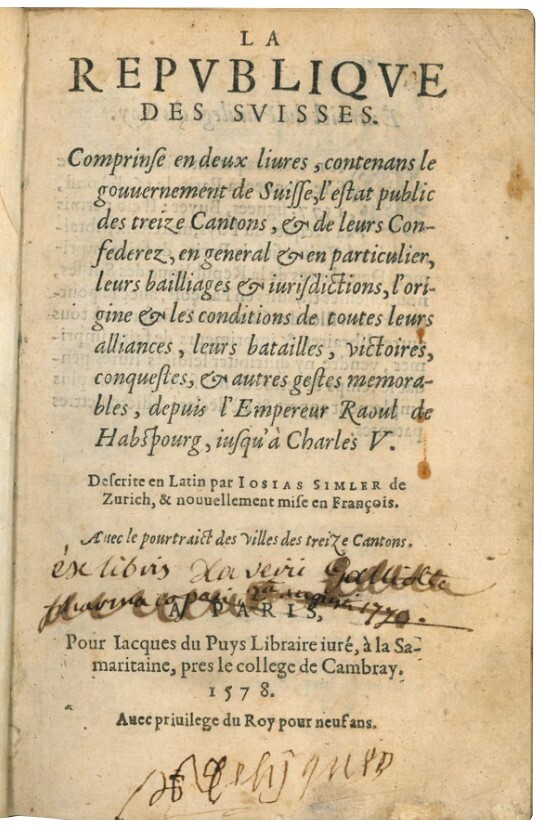 LA
REPVBLIQVE
DES SVISSES.
Comprinſe en deux liures, contenans le
gouuernement de Suiſſe, l'eſtat public
des treize Cantons, & de leurs Con-
federez, en general & en particulier,
leurs bailliages & iuriſdictions, l'ori-
gine & les conditions de toutes leurs
alliances, leurs batailles, victoires,
conqueſtes, & autres geſtes memora-
bles, depuis l'Empereur Raoul de
Habſpourg, iuſqu'à Charles V.
Deſcrite en Latin par IOSIAS SIMLER de
Zurich, & nouuellement miſe en François.
Auec le pourtraict des villes des treize Cantons.
ex libris Xaverii
1770.
A PARIS,
Pour Iacques du Puys Libraire iuré, à la Sa-
maritaine, pres le college de Cambray.
1578.
Auec priuilege du Roy pour neuf ans.